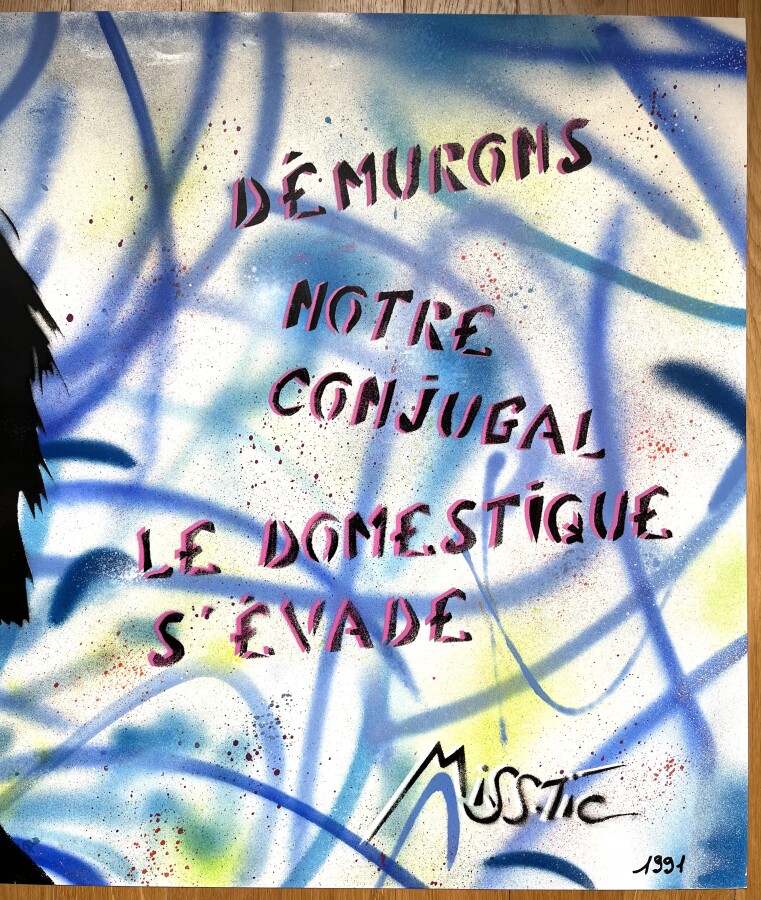 DÉMURONS
NOTRE
CONJUGAL
LE DOMESTIQUE
S'ÉVADE
MISS.TIC
1991